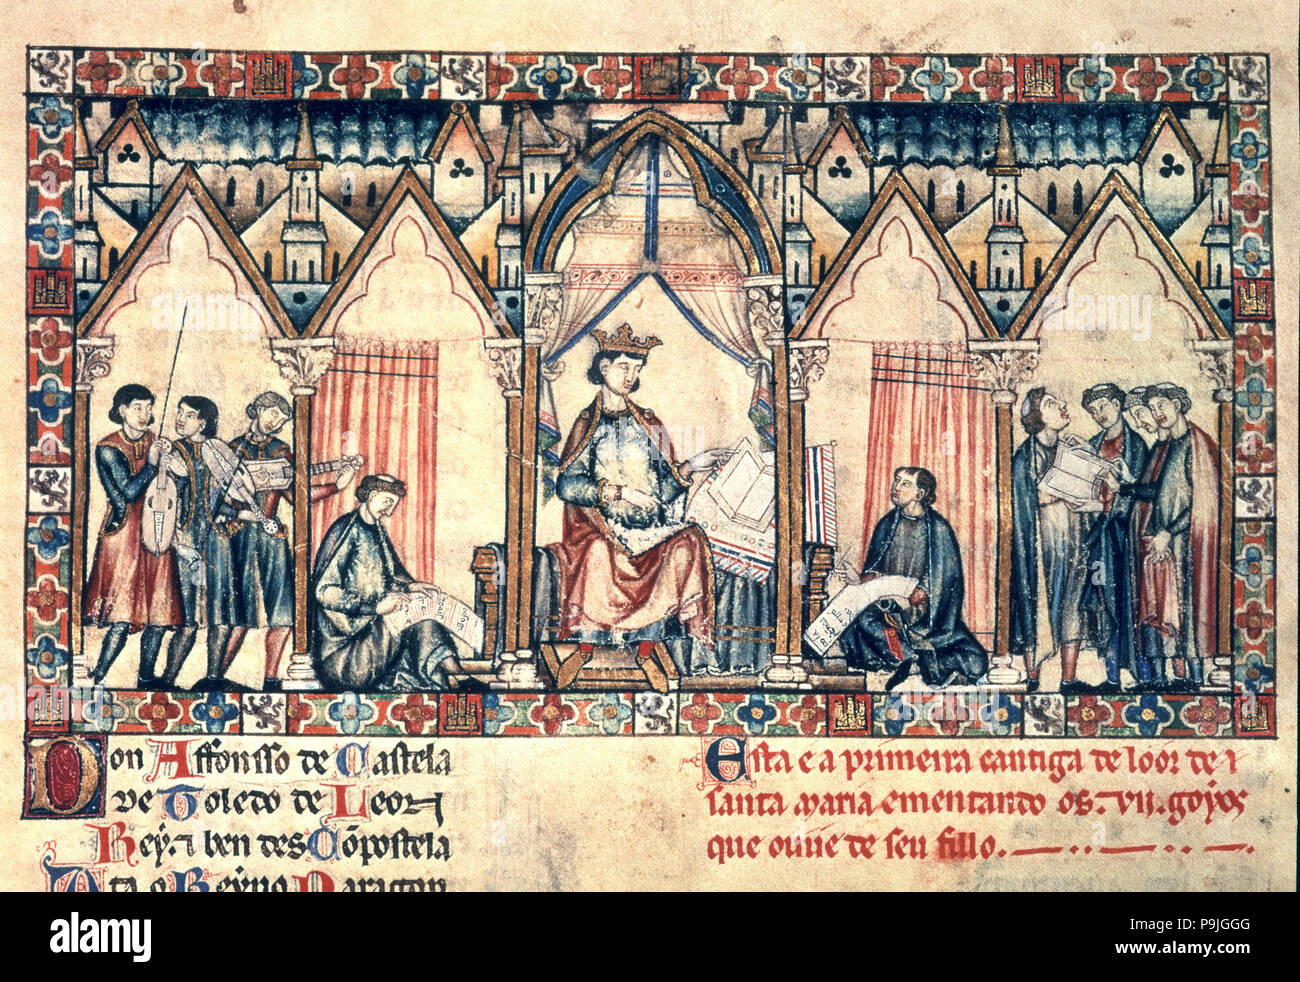 Don Affonsso de Castela
de Toledo de Leon
Rey. ben des Cōpostela
Ta o Reyno Daragon
Esta e a primeira cantiga de loor de
santa maria ementando os .vii. goyos
que ouue de seu fillo.
alamy
Image ID: P9JGGG
www.alamy.com